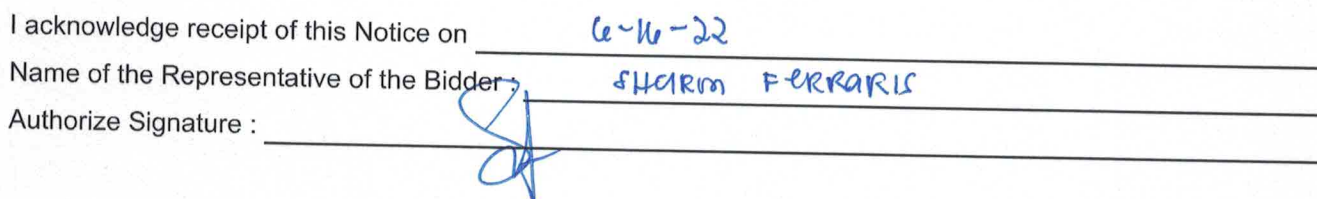 I acknowledge receipt of this Notice on 6-16-22
Name of the Representative of the Bidder : SHARM FERRARIS
Authorize Signature :